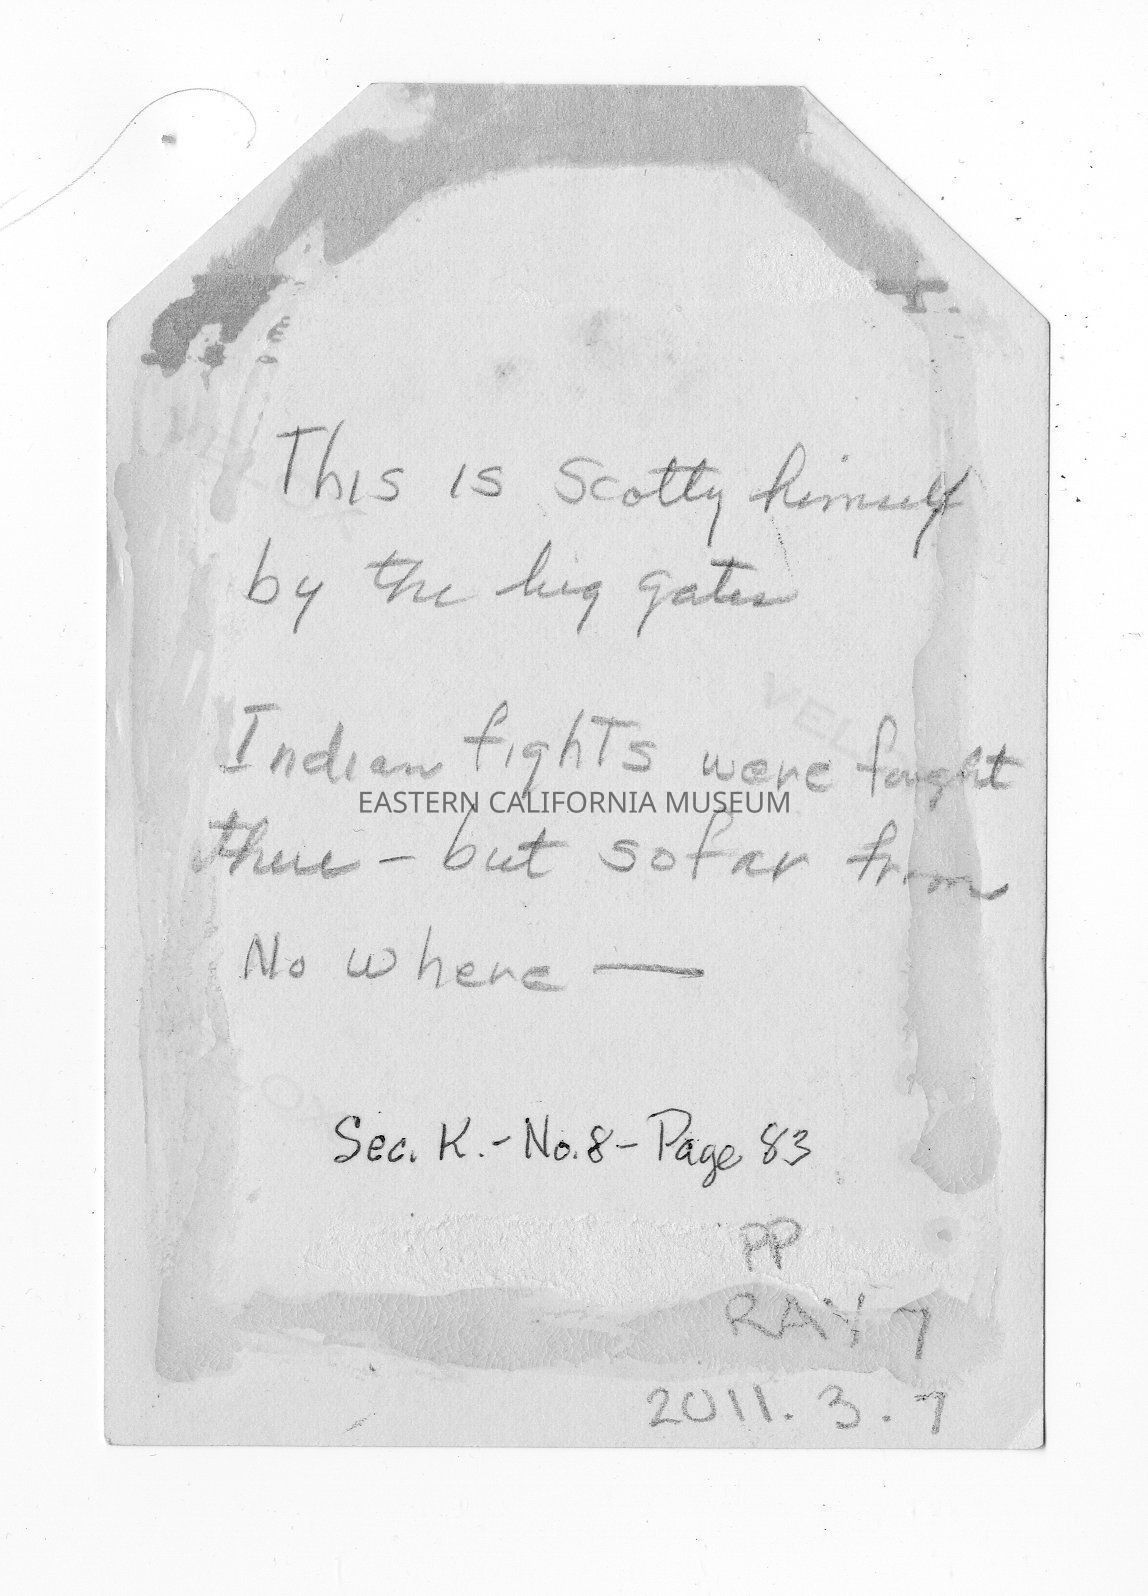 This is Scotty himself
by the big gates
Indian fights were fought
EASTERN CALIFORNIA MUSEUM
there – but so far from
No where —
Sec. K. - No. 8 - Page 83
PP
RAY 7
2011. 3. 7